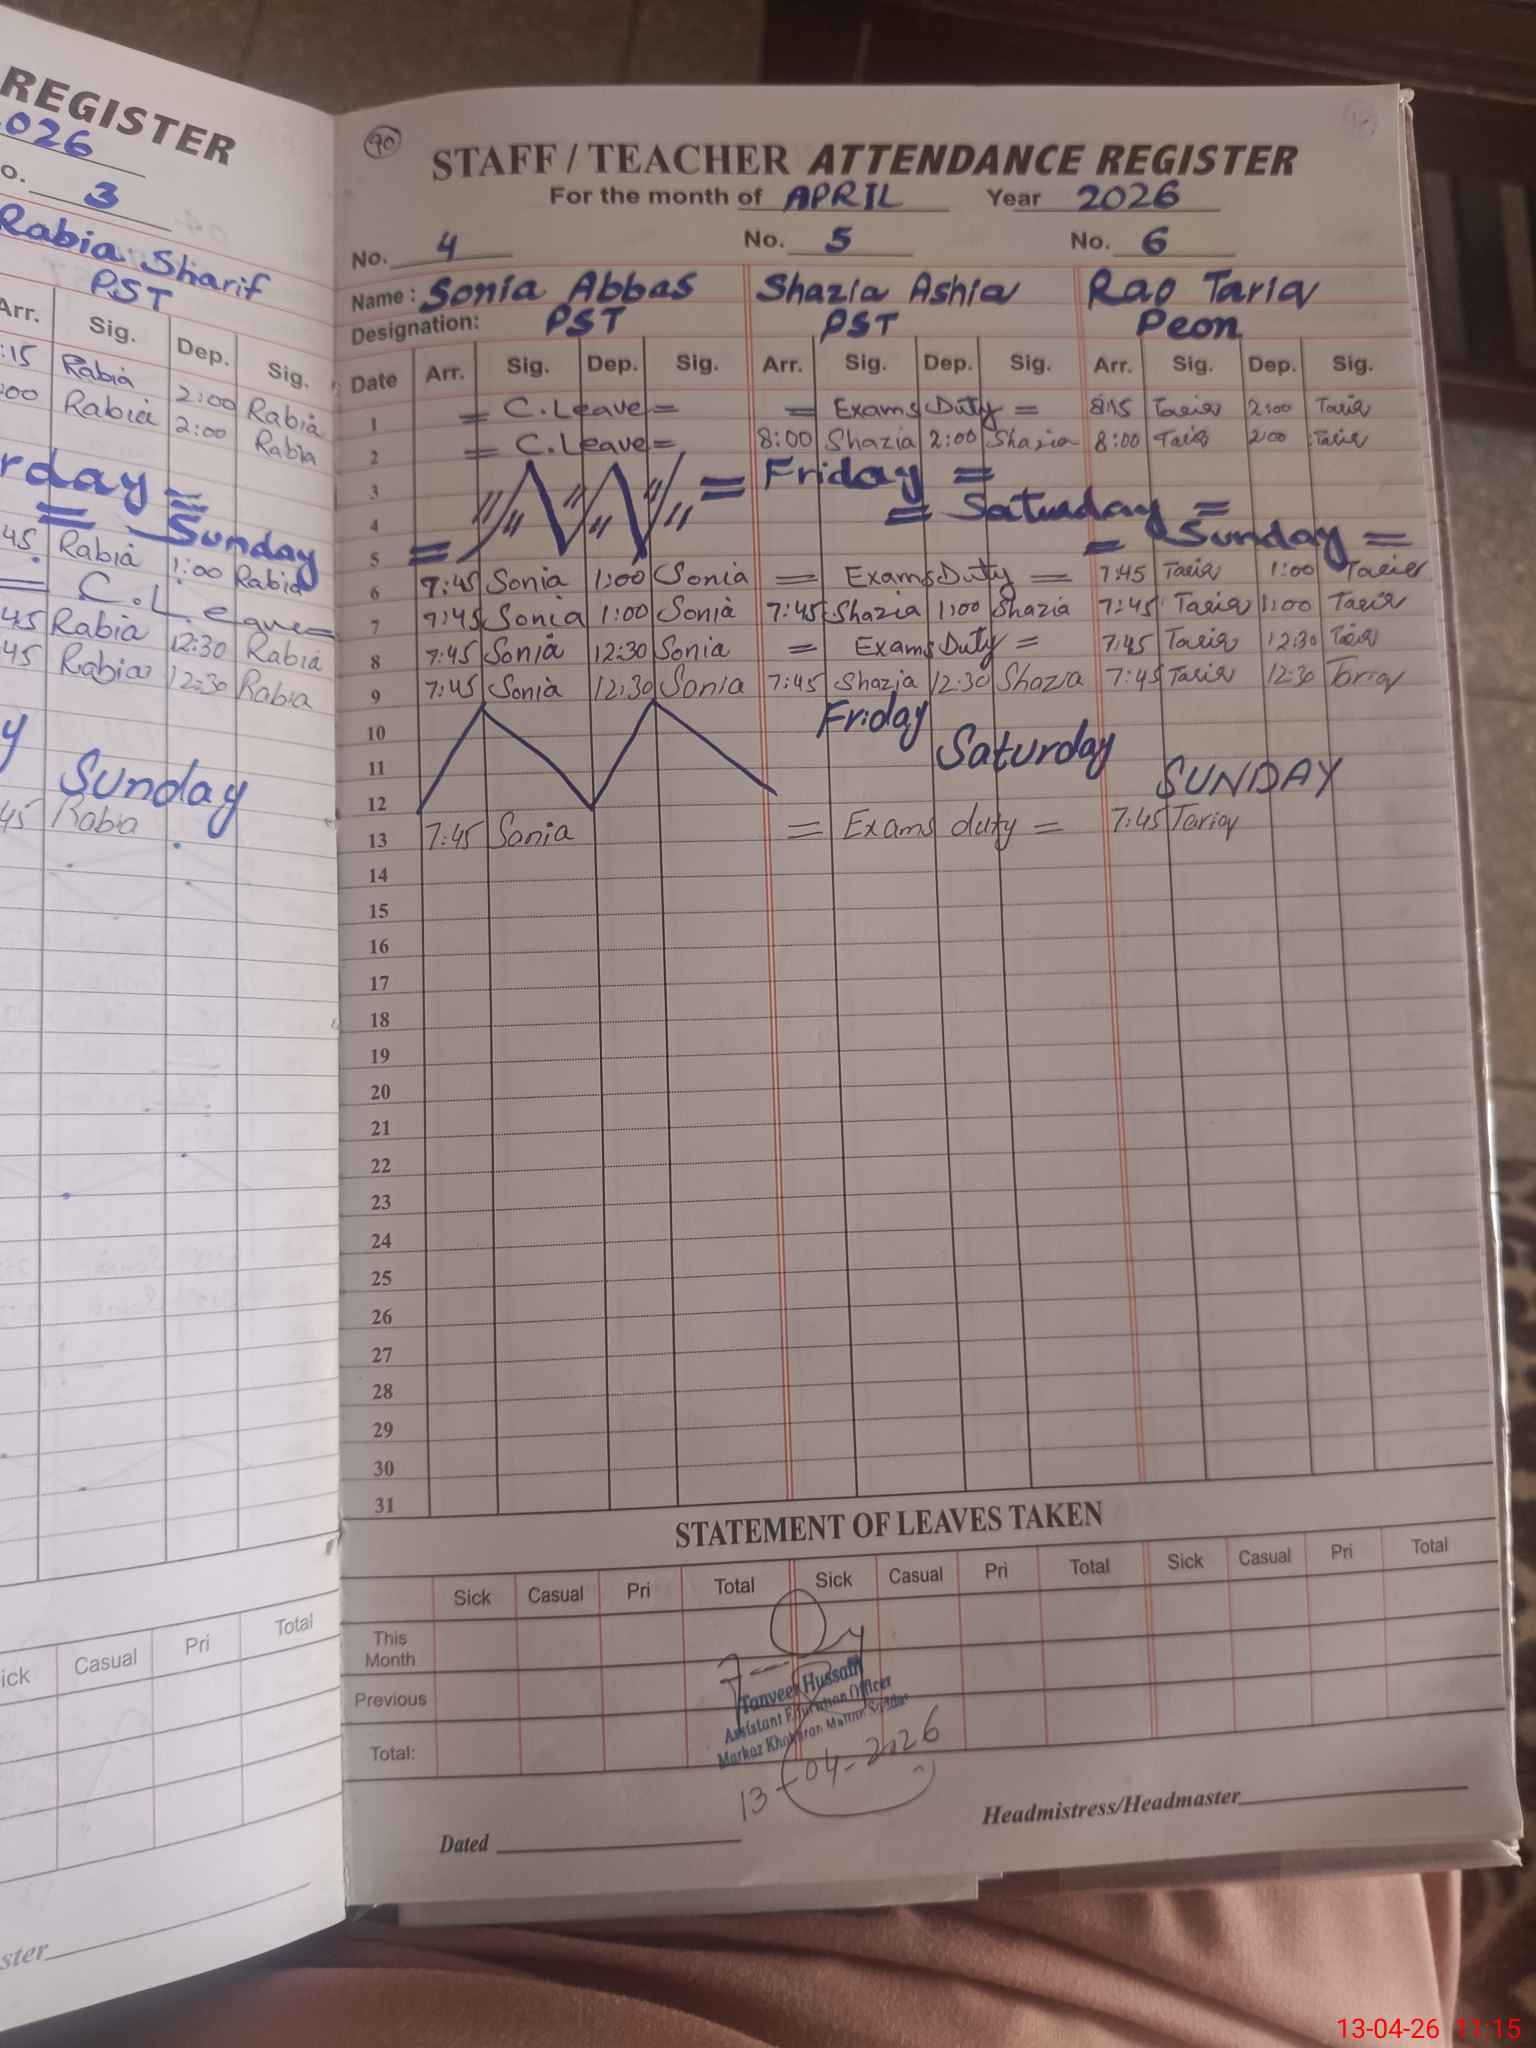 REGISTER
026
o. 3
Rabia Sharif
PST
Arr. Sig. Dep. Sig.
:15 Rabia 2:00 Rabia
:00 Rabia 2:00 Rabia
rday =
= Sunday
45 Rabia 1:00 Rabia
= C.Leave =
45 Rabia 12:30 Rabia
45 Rabia 12:30 Rabia
y Sunday
45 Rabia
ick Casual Pri Total
ster
90
STAFF / TEACHER ATTENDANCE REGISTER
For the month of APRIL Year 2026
No. 4 No. 5 No. 6
Name: Sonia Abbas Shazia Ashiq Rao Tariq
Designation: PST PST Peon
Date Arr. Sig. Dep. Sig. Arr. Sig. Dep. Sig. Arr. Sig. Dep. Sig.
1 = C.Leave = = Exams Duty = 8:15 Tariq 2:00 Tariq
2 = C.Leave = 8:00 Shazia 2:00 Shazia 8:00 Tariq 2:00 Tariq
3 = Friday =
4 = Saturday =
5 = = Sunday =
6 7:45 Sonia 1:00 Sonia = Exams Duty = 7:45 Tariq 1:00 Tariq
7 7:45 Sonia 1:00 Sonia 7:45 Shazia 1:00 Shazia 7:45 Tariq 1:00 Tariq
8 7:45 Sonia 12:30 Sonia = Exams Duty = 7:45 Tariq 12:30 Tariq
9 7:45 Sonia 12:30 Sonia 7:45 Shazia 12:30 Shazia 7:45 Tariq 12:30 Tariq
10 Friday
11 Saturday
12 SUNDAY
13 7:45 Sonia = Exams duty = 7:45 Tariq
14
15
16
17
18
19
20
21
22
23
24
25
26
27
28
29
30
31
STATEMENT OF LEAVES TAKEN
Sick Casual Pri Total Sick Casual Pri Total Sick Casual Pri Total
This Month
Previous
Total:
Tanveer Hussain
Assistant Education Officer
Markaz
13-04-2026
Dated
Headmistress/Headmaster
13-04-26 11:15